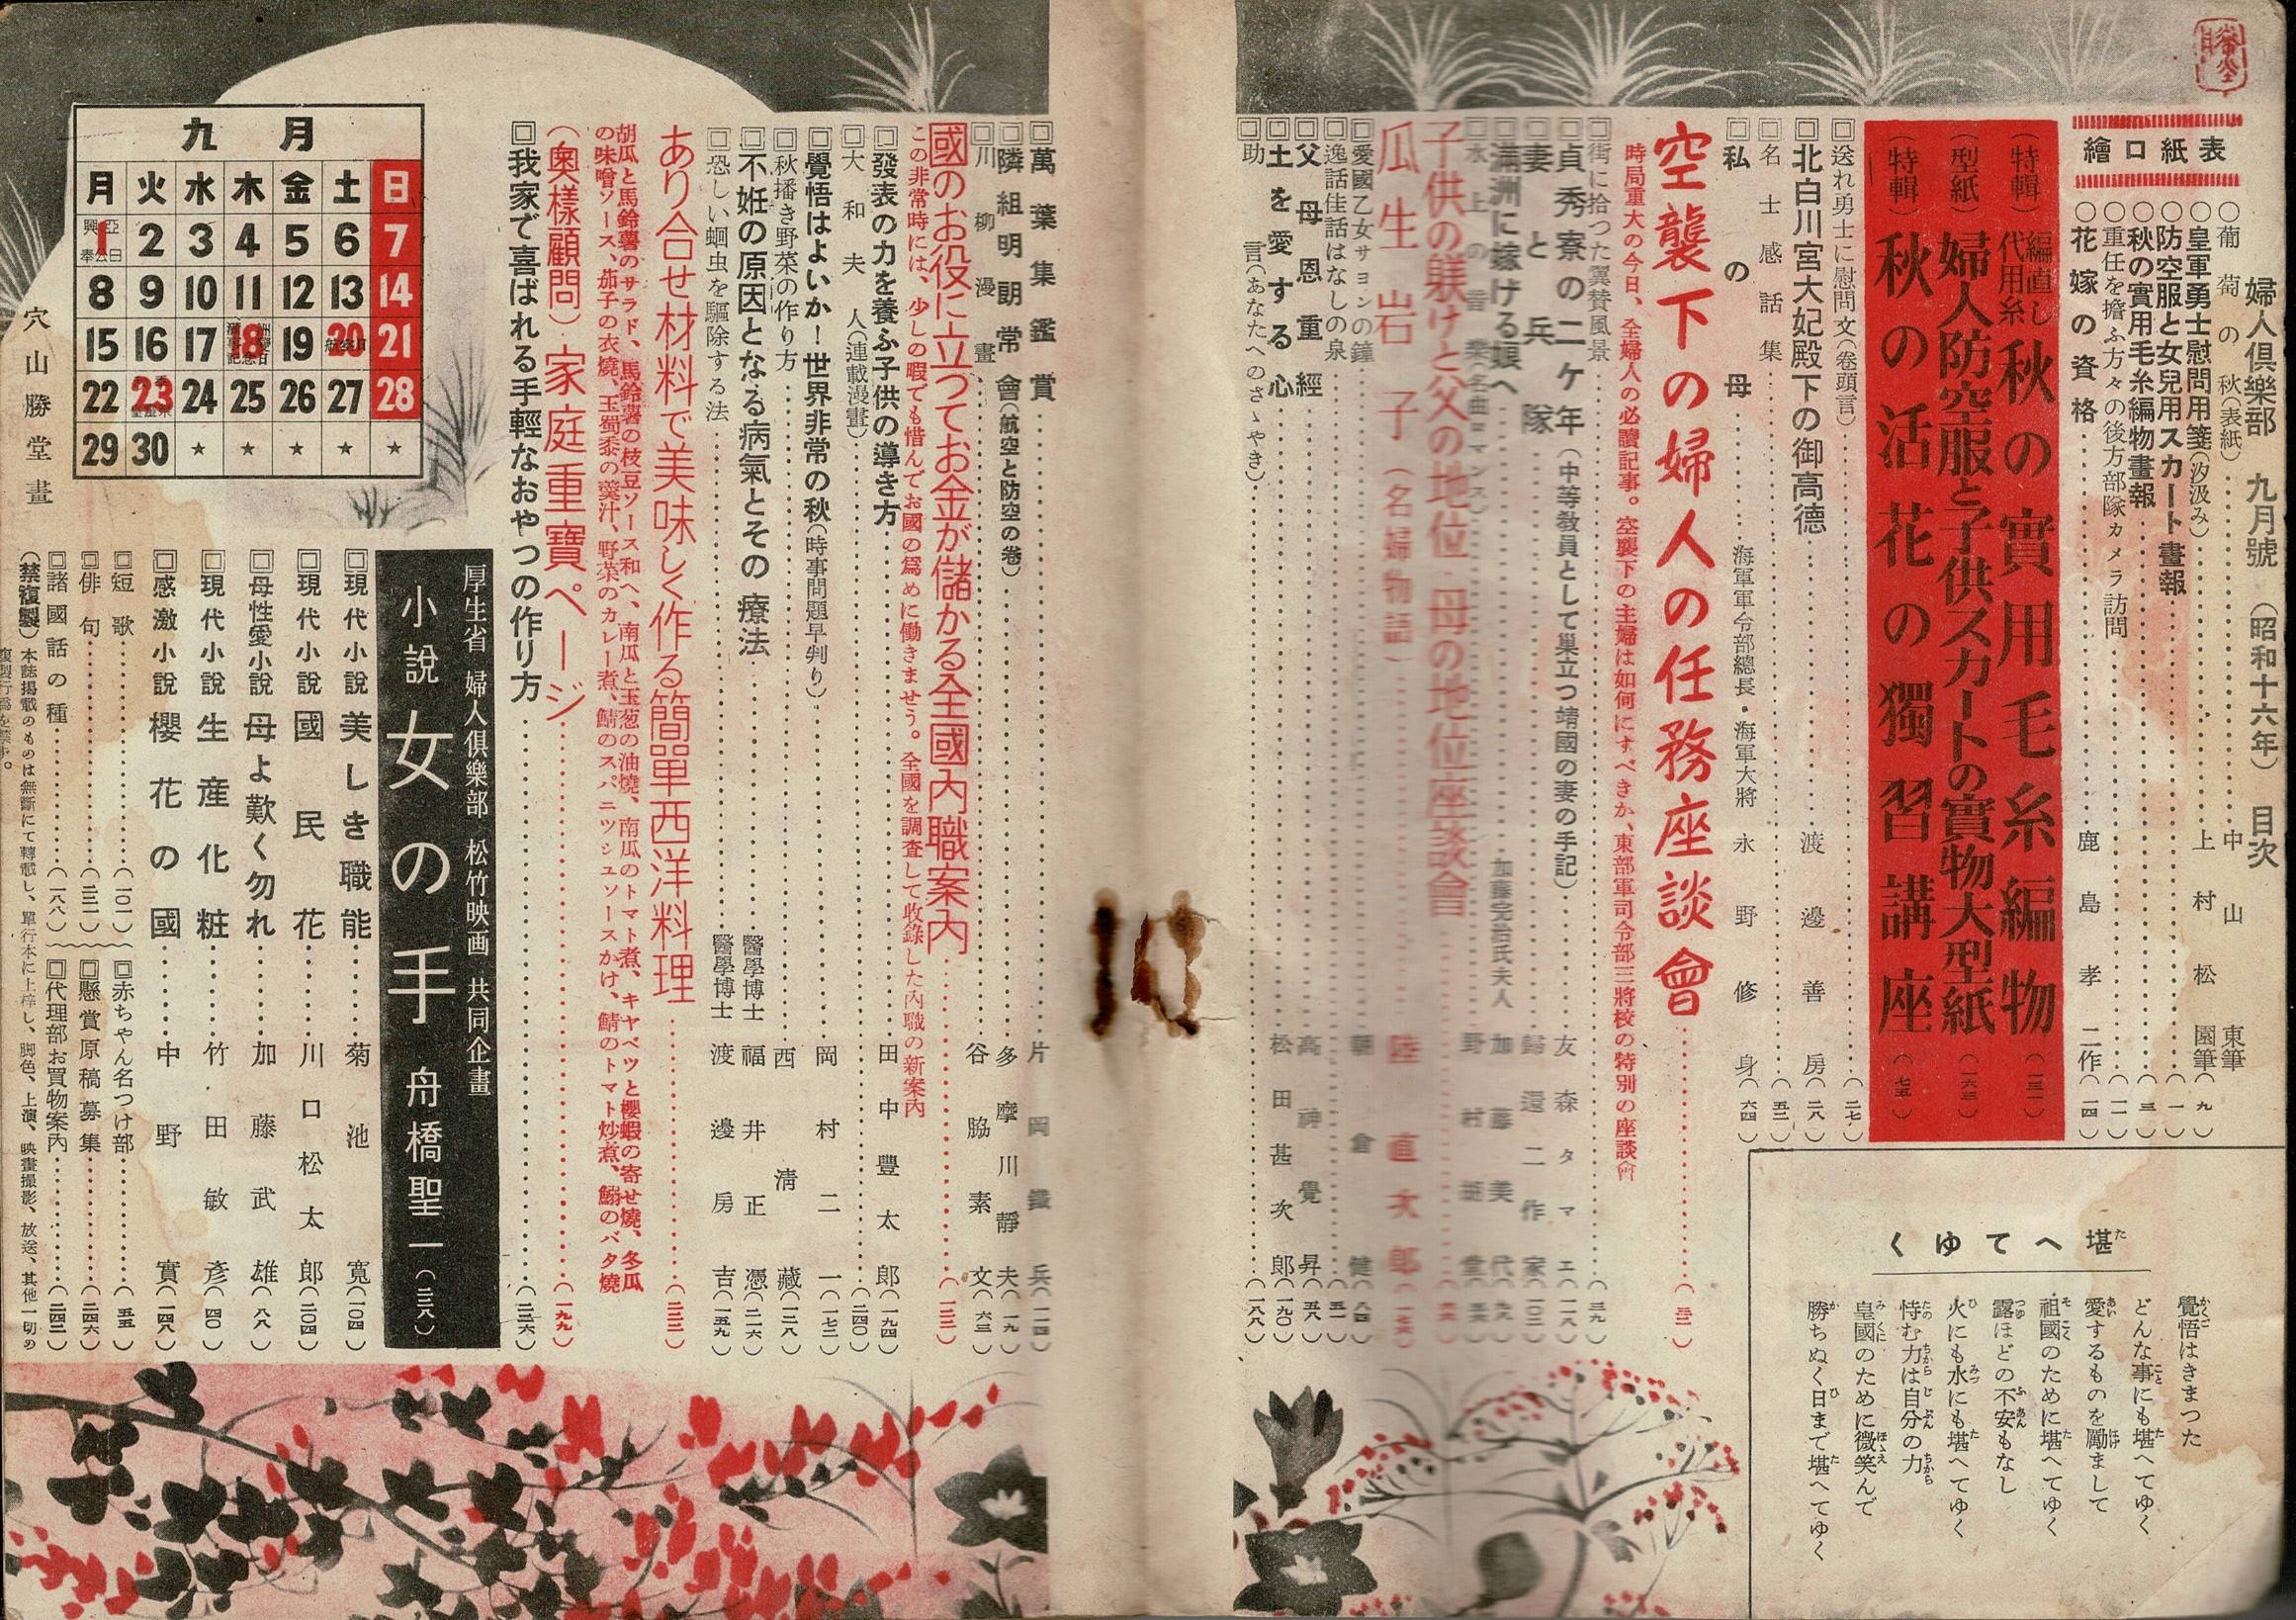 婦人倶樂部 九月號 (昭和十六年) 目次
表紙口繪
○葡萄の秋(表紙)……中山東筆
○皇軍勇士慰問用箋(汐汲み)……上村松園筆(九)
○防空服と女兒用スカート畫報……(一)
○秋の實用毛糸編物畫報……(三)
○重任を擔ふ方々の後方部隊カメラ訪問……(一一)
○花嫁の資格……鹿島孝二作(一四)
(特輯)編直し代用糸秋の實用毛糸編物(三一)
(型紙)婦人防空服と子供スカートの實物大型紙(一六三)
(特輯)秋の活花の獨習講座(七五)
□送れ勇士に慰問文(卷頭言)……(二七)
□北白川宮大妃殿下の御高德……渡邊善房(二八)
□名士感話集……(五二)
□私の母……海軍軍令部總長・海軍大將 永野修身(六四)
空襲下の婦人の任務座談會……(三二)
時局重大の今日、全婦人の必讀記事。空襲下の主婦は如何にすべきか、東部軍司令部三將校の特別の座談會
□街に拾つた翼賛風景……(三九)
□貞秀寮の二ケ年(中等教員として巣立つ靖國の妻の手記)……友森タマエ(一二八)
□妻と兵隊……歸還二作家(一〇三)
□滿洲に嫁ける娘へ……加藤完治氏夫人 加藤美代
□水上の音樂(名曲ロマンス)……野村
子供の躾けと父の地位・母の地位座談會
瓜生岩子(名婦物語)……陸直次郎
□愛國乙女サヨンの鐘……朝倉健(八四)
□逸話佳話はなしの泉……(五一)
□父母恩重經……高神覺昇(五八)
□土を愛する心……松田甚次郎(一九〇)
□助言(あなたへのさゝやき)……(一八八)
堪へてゆく
覺悟はきまつた
どんな事にも堪へてゆく
愛するものを勵まして
祖國のために堪へてゆく
露ほどの不安もなし
火にも水にも堪へてゆく
恃む力は自分の力
皇國のために微笑んで
勝ちぬく日まで堪へてゆく
□萬葉集鑑賞……片岡鐵兵(一二四)
□隣組明朗常會(航空と防空の卷)……多摩川靜夫(一九)
□川柳漫畫……谷脇素文(六三)
國のお役に立つてお金が儲かる全國内職案内……(一三)
この非常時には、少しの暇でも惜んでお國の爲めに働きませう。全國を調査して收錄した内職の新案内
□發表の力を養ふ子供の導き方……田中豐太郎(一九四)
□大和夫人(連載漫畫)……(二四〇)
□覺悟はよいか!世界非常の秋(時事問題早判り)……岡村二一(一七二)
□秋播き野菜の作り方……西清藏(一三八)
□不姙の原因となる病氣とその療法……醫學博士 福井正憑(二一六)
□恐しい蛔虫を驅除する法……醫學博士 渡邊房吉(一五九)
あり合せ材料で美味しく作る簡單西洋料理……(二三二)
胡瓜と馬鈴薯のサラド、馬鈴薯の枝豆ソース和へ、南瓜と玉葱の油燒、南瓜のトマト煮、キヤベツと櫻蝦の寄せ燒、冬瓜
の味噌ソース、茄子の衣燒、玉蜀黍の羹汁、野菜のカレー煮、鯖のスパニツシユソースかけ、鯖のトマト炒煮、鰯のバタ燒
(奥樣顧問)家庭重寶ページ……(一九九)
□我家で喜ばれる手輕なおやつの作り方……(二三六)
厚生省 婦人倶樂部 松竹映画 共同企畫
小説 女の手 舟橋聖一(二三八)
□現代小説 美しき職能……菊池寛(一〇四)
□現代小説 國民花……川口松太郎(二〇四)
□母性愛小説 母よ歎く勿れ……加藤武雄(八八)
□現代小説 生産化粧……竹田敏彦(四〇)
□感激小説 櫻花の國……中野實(一四八)
□短歌……(一〇一)
□俳句……(三二)
□諸國話の種……(一八八)
□赤ちやん名つけ部……(五五)
□懸賞原稿募集……(二四六)
□代理部お買物案内……(二四三)
(禁複製)本誌掲載のものは無斷にて轉載し、單行本に上梓し、脚色、上演、映畫撮影、放送、其他一切の
複製行爲を禁ず。
九月
月 火 水 木 金 土 日
1 2 3 4 5 6 7
興亞奉公日
8 9 10 11 12 13 14
15 16 17 18 19 20 21
航空日
22 23 24 25 26 27 28
29 30 ★ ★ ★ ★ ★
穴山勝堂畫